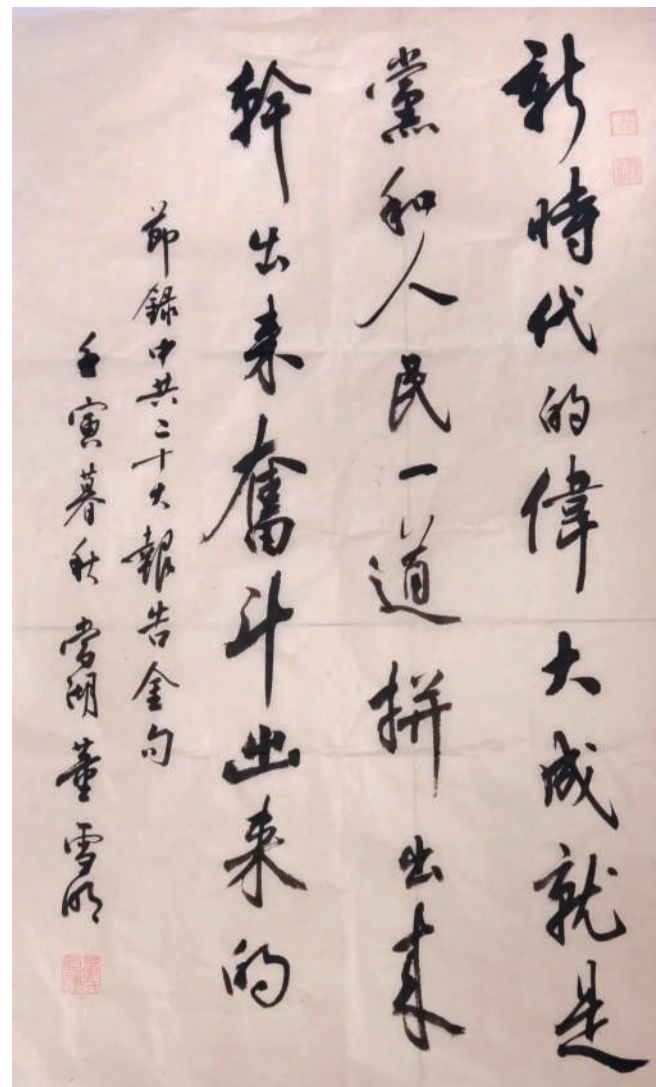 新時代的偉大成就是
黨和人民一道拼出来
幹出来奮斗出来的
節録中共二十大報告金句
壬寅暮秋 當湖董雪明